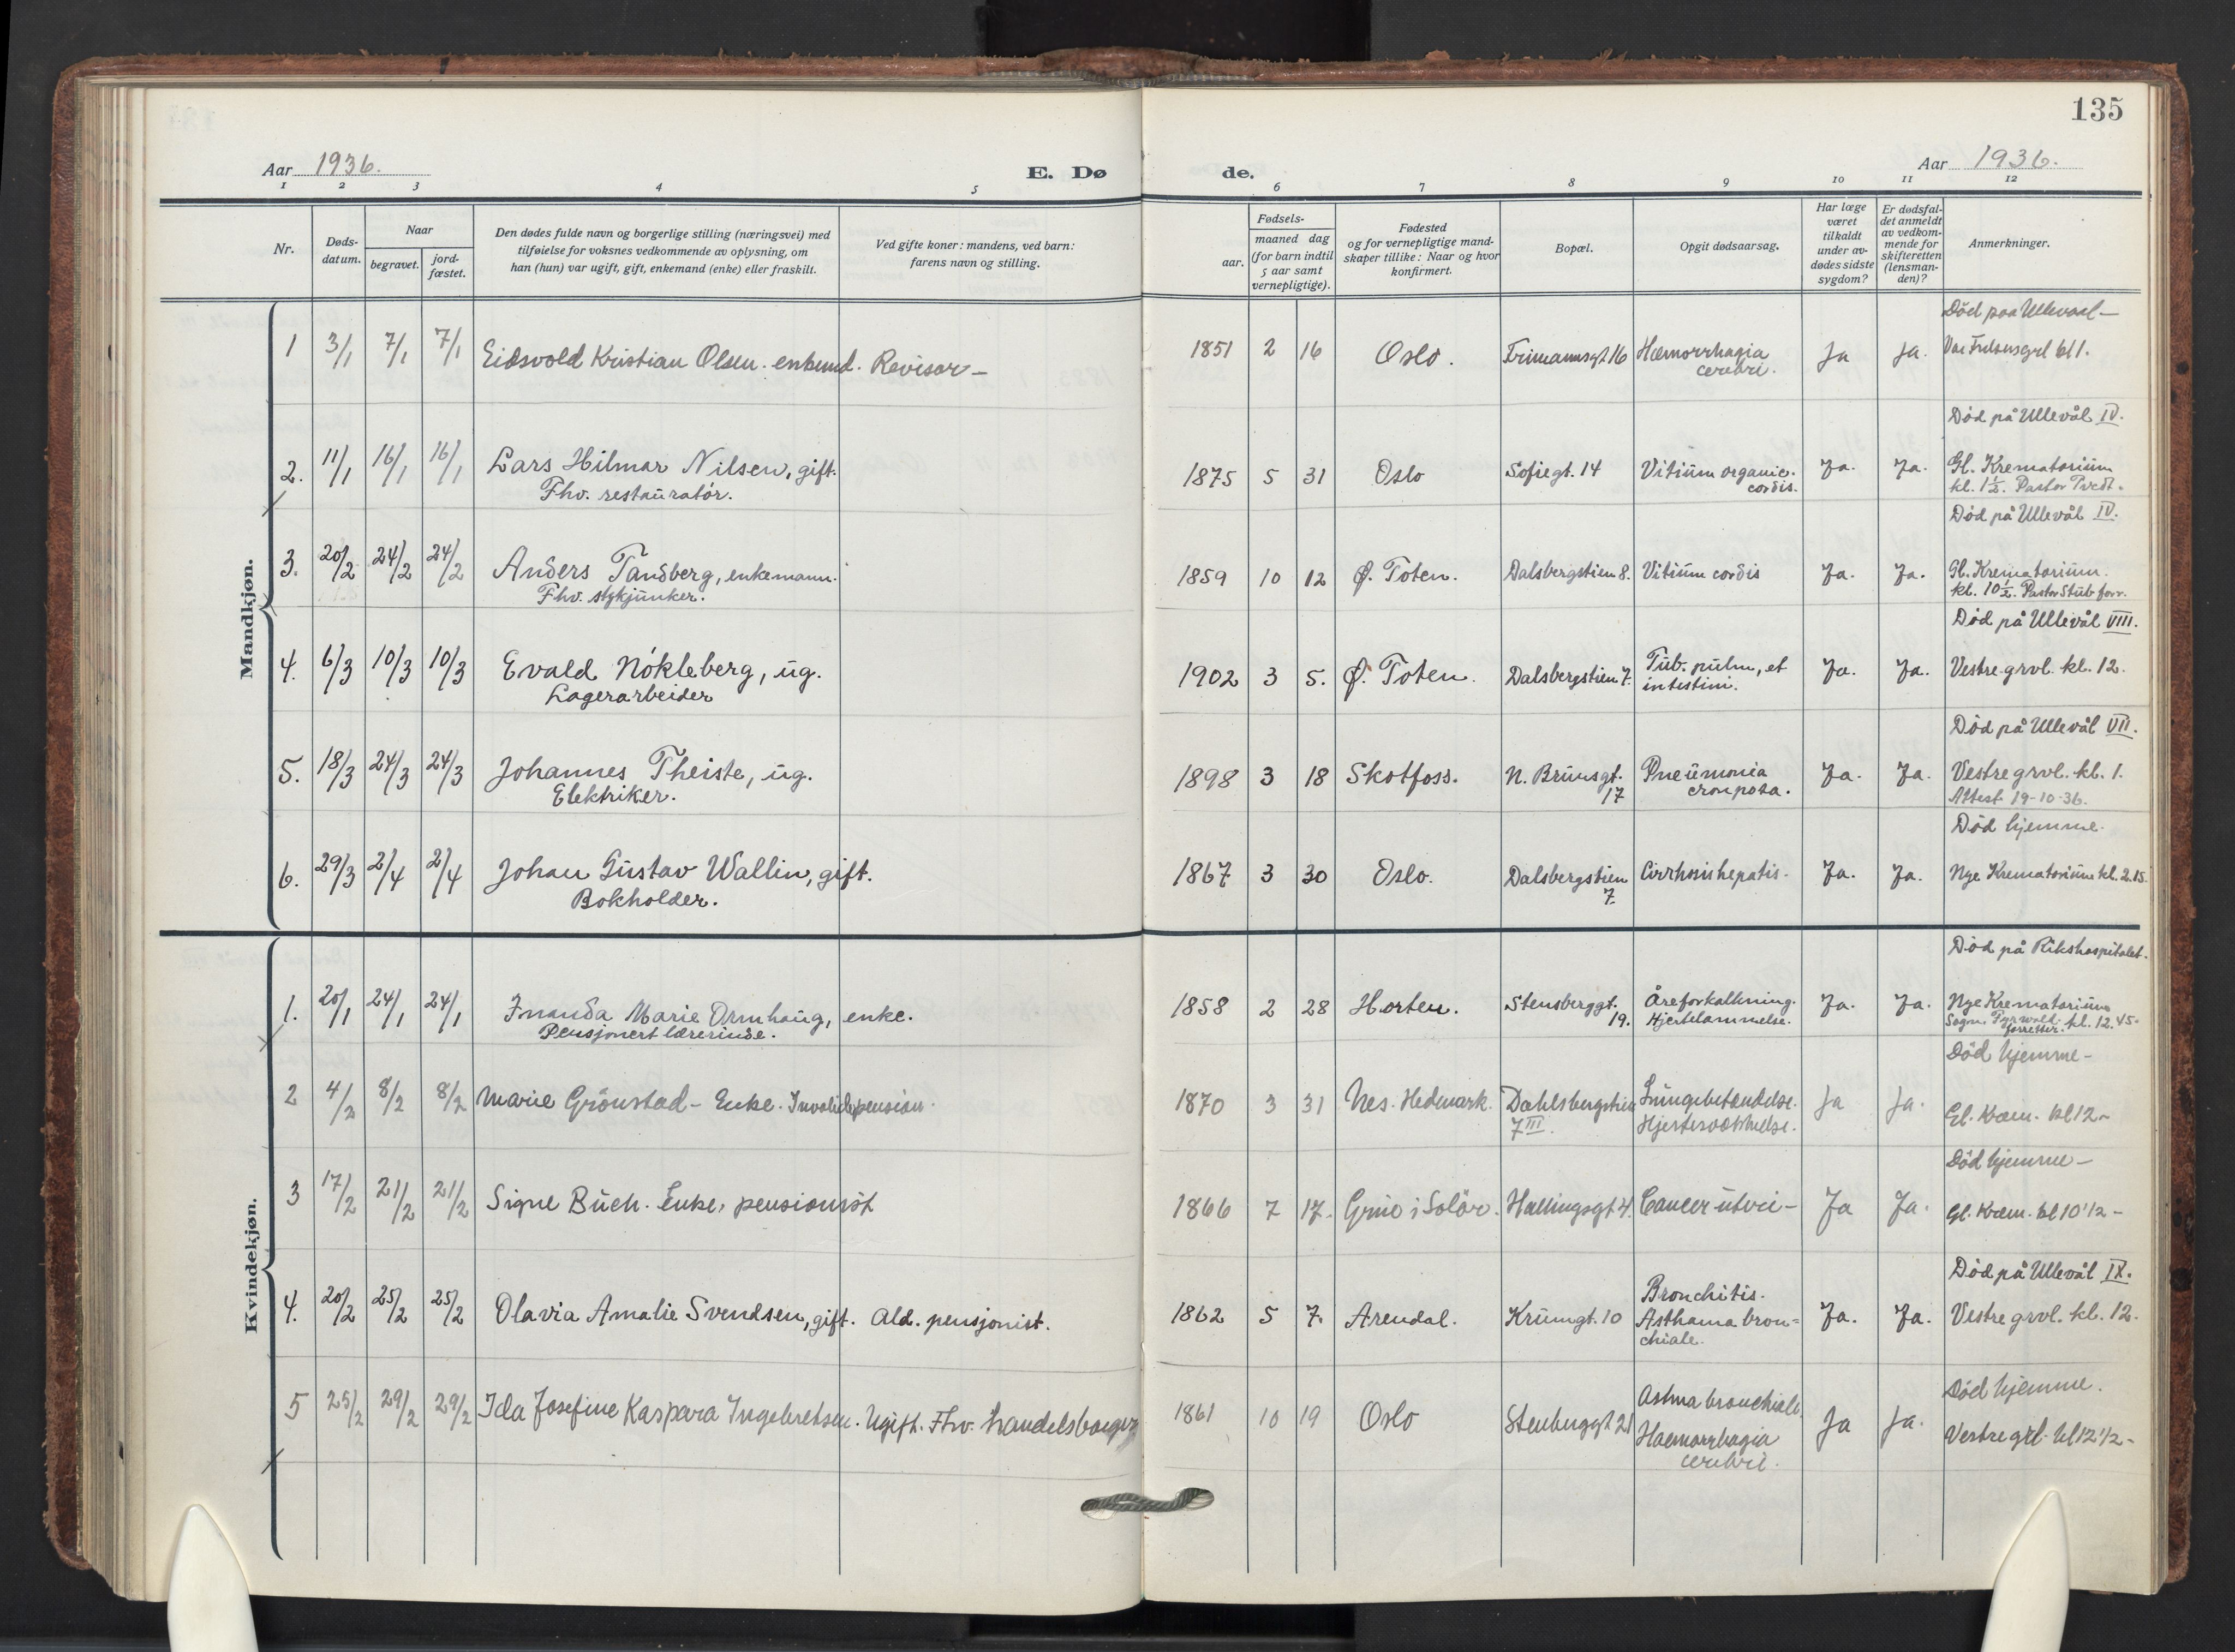 135
Aar 1936.
E. Dø
de.
Aar 1936.
1 2 3 4 5 6 7 8 9 10 11 12
Nr.
Døds-
datum.
Naar
begravet.
jord-
fæstet.
Den dødes fulde navn og borgerlige stilling (næringsvei) med
tilføielse for voksnes vedkommende av oplysning, om
han (hun) var ugift, gift, enkemand (enke) eller fraskilt.
Ved gifte koner: mandens, ved barn:
farens navn og stilling.
Fødsels-
aar.
maaned dag
(for barn indtil
5 aar samt
vernepligtige).
Fødested
og for vernepligtige mand-
skaper tillike: Naar og hvor
konfirmert.
Bopæl.
Opgit dødsaarsag.
Har læge
været
tilkaldt
under av-
dødes sidste
sygdom?
Er dødsfal-
det anmeldt
av vedkom-
mende for
skifteretten
(lensman-
den)?
Anmerkninger.
Mandkjøn.
1 3/1 7/1 7/1 Eidsvold Kristian Olsen. enkemd. Revisor –
1851 2 16 Oslo. Frimannsgt 16 Hæmorrhagia
cerebri.
Ja Ja. Død paa Ullevaal –
Vor Frelsersgrl kl 1.
2. 11/1 16/1 16/1 Lars Hilmar Nilsen, gift.
Fhv. restauratør.
1875 5 31 Oslo Sofiegt. 14 Vitium organic.
cordis.
Ja. Ja. Død på Ullevål IV.
Gl. Krematorium
kl. 1½. Pastor Tvedt.
3. 20/2 24/2 24/2 Anders Tandberg, enkemann.
Fhv. stykjunker.
1859 10 12 Ø. Toten. Dalsbergstien 8. Vitium cordis
Ja. Ja. Død på Ullevål IV.
Gl. Krematorium.
kl. 10½. Pastor Stub forr.
4. 6/3 10/3 10/3 Evald Nøkleberg, ug.
Lagerarbeider
1902 3 5. Ø. Toten. Dalsbergstien 7. Tub. pulm, et
intestini.
Ja. Ja. Død på Ullevål VIII.
Vestre grvl. kl. 12.
5. 18/3 24/3 24/3 Johannes Theiste, ug.
Elektriker.
1898 3 18 Skotfoss. N. Brunsgt.
17
Pneumonia
crouposa.
Ja. Ja. Død på Ullevål VII.
Vestre grvl. kl. 1.
Attest 19-10-36.
6. 29/3 2/4 2/4 Johan Gustav Wallin, gift.
Bokholder.
1867 3 30 Oslo. Dalsbergstien
7.
Cirrhosis hepatis.
Ja. Ja. Død hjemme.
Nye Krematorium kl. 2.15.
Kvindekjøn.
1. 20/1 24/1 24/1 Marie Ormhaug, enke.
Pensjonert lærerinde.
1858 2 28 Horten. Stensberggt.
19.
Åreforkalkning.
Hjertelammelse.
Ja. Ja. Død på Rikshospitalet.
Nye Krematorium
Sogn. forretter. kl. 12.45.
2 4/2 8/2 8/2 Marie Grönstad – Enke. Invalidepension.
1870 3 31 Nes. Hedmark. Dahlsbergstien
7 III.
Lungebetændelse.
Hjertesvækkelse.
Ja Ja. Død hjemme –
Gl. Kræm. kl 12 –
3 17/2 21/2 21/2 Signe Buch. Enke, pensionist
1866 7 17. Grue i Solör. Hallingsgt 4. Cancer uteri –
Ja Ja. Død hjemme –
Gl. Kræm. kl 10 1/2 –
4. 20/2 25/2 25/2 Olavia Amalie Svendsen, gift. Ald. pensjonist.
1862 5 7. Arendal. Krumgt. 10 Bronchitis.
Asthama bron=
chiale.
Ja. Ja. Død på Ullevål IX.
Vestre grvl. kl. 12.
5 25/2 29/2 29/2 Ida Josefine Kaspara Ingebretsen. Ugift. Fhv. handelsborger
1861 10 19 Oslo Stenberggt 21 Astma bronchiale
Haemorrhagia
cerebri.
Ja Ja. Død hjemme.
Vestre grl. kl 12 1/2 –